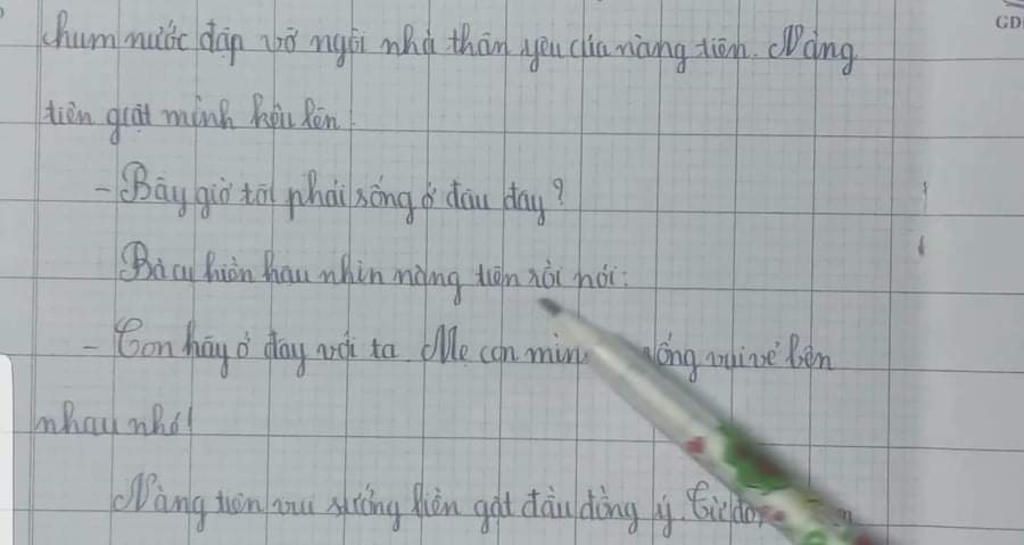 GD
chum nước đập vỡ ngôi nhà thân yêu của nàng tiên. Nàng
tiên giật mình kêu lên.
- Bây giờ tôi phải sống ở đâu đây?
Bà cụ hiền hậu nhìn nàng tiên rồi nói:
- Con hãy ở đây với ta. Mẹ con sống vui vẻ bên
nhau nhé!
Nàng tiên vui sướng liền gật đầu đồng ý. Từ đó